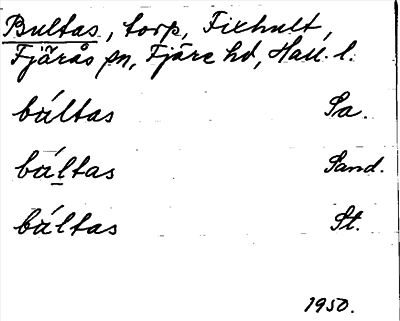 Bultas, torp, Fixhult,
Fjärås sn, Fjäre hd, Hall. l.
búltas Sa.
búl̲tas Sand.
búltas St.
1950.